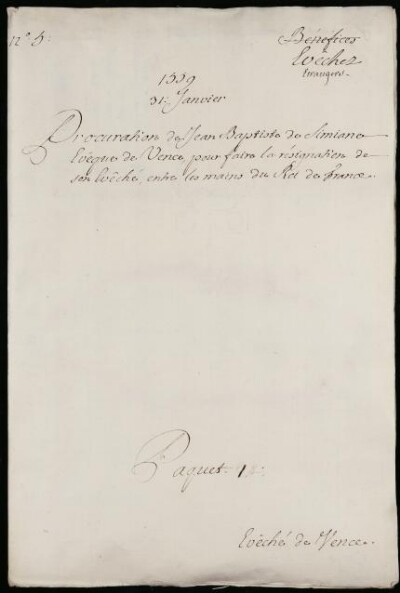 n.° 5.
Bénéfices
Evêchez
Etrangers.
1559
31. Janvier
Procuration de Jean Baptiste de Simiane
Evêque de Vence, pour faire la résignation de
son Evêché, entre les mains du Roi de France.
Paquet 1
Evêché de Vence.